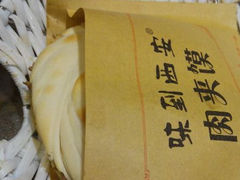 味到西安
肉夹馍